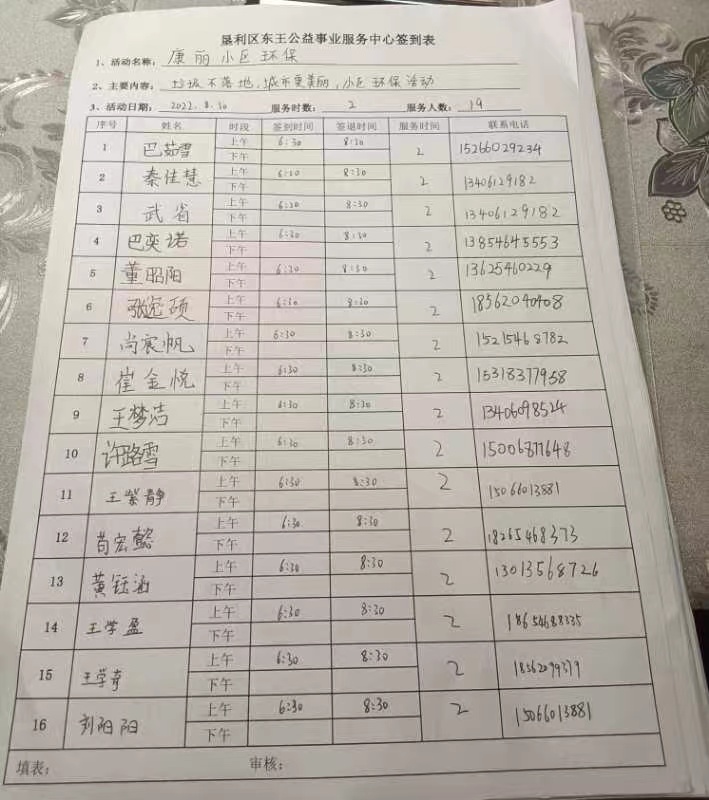 垦利区东王公益事业服务中心签到表
1、活动名称： 康丽小区环保
2、主要内容： 垃圾不落地，城市更美丽，小区环保活动
3、活动日期： 2022.8.30 服务时数： 2 服务人数： 19
序号 姓名 时段 签到时间 签退时间 服务时间 联系电话
1 巴茹雪 上午 6:30 8:30 2 15266029234
下午
2 秦佳慧 上午 6:30 8:30 2 13406129182
下午
3 武省 上午 6:30 8:30 2 13406129182
下午
4 巴奕诺 上午 6:30 8:30 2 13854645553
下午
5 董昭阳 上午 6:30 8:30 2 13625460229
下午
6 上午 6:30 8:30 2 18562040408
下午
7 尚宸帆 上午 6:30 8:30 2 15215468782
下午
8 崔金悦 上午 6:30 8:30 2 15318377958
下午
9 王梦洁 上午 6:30 8:30 2 13406098524
下午
10 许路雪 上午 6:30 8:30 2 15006877648
下午
11 王紫静 上午 6:30 8:30 2 15066013881
下午
12 苟宏懿 上午 6:30 8:30 2 18265468373
下午
13 黄钰涵 上午 6:30 8:30 2 13013568726
下午
14 王学盈 上午 6:30 8:30 2
下午
15 王学奇 上午 6:30 8:30 2 18562099379
下午
16 刘阳阳 上午 6:30 8:30 2 15066013881
下午
填表： 审核：